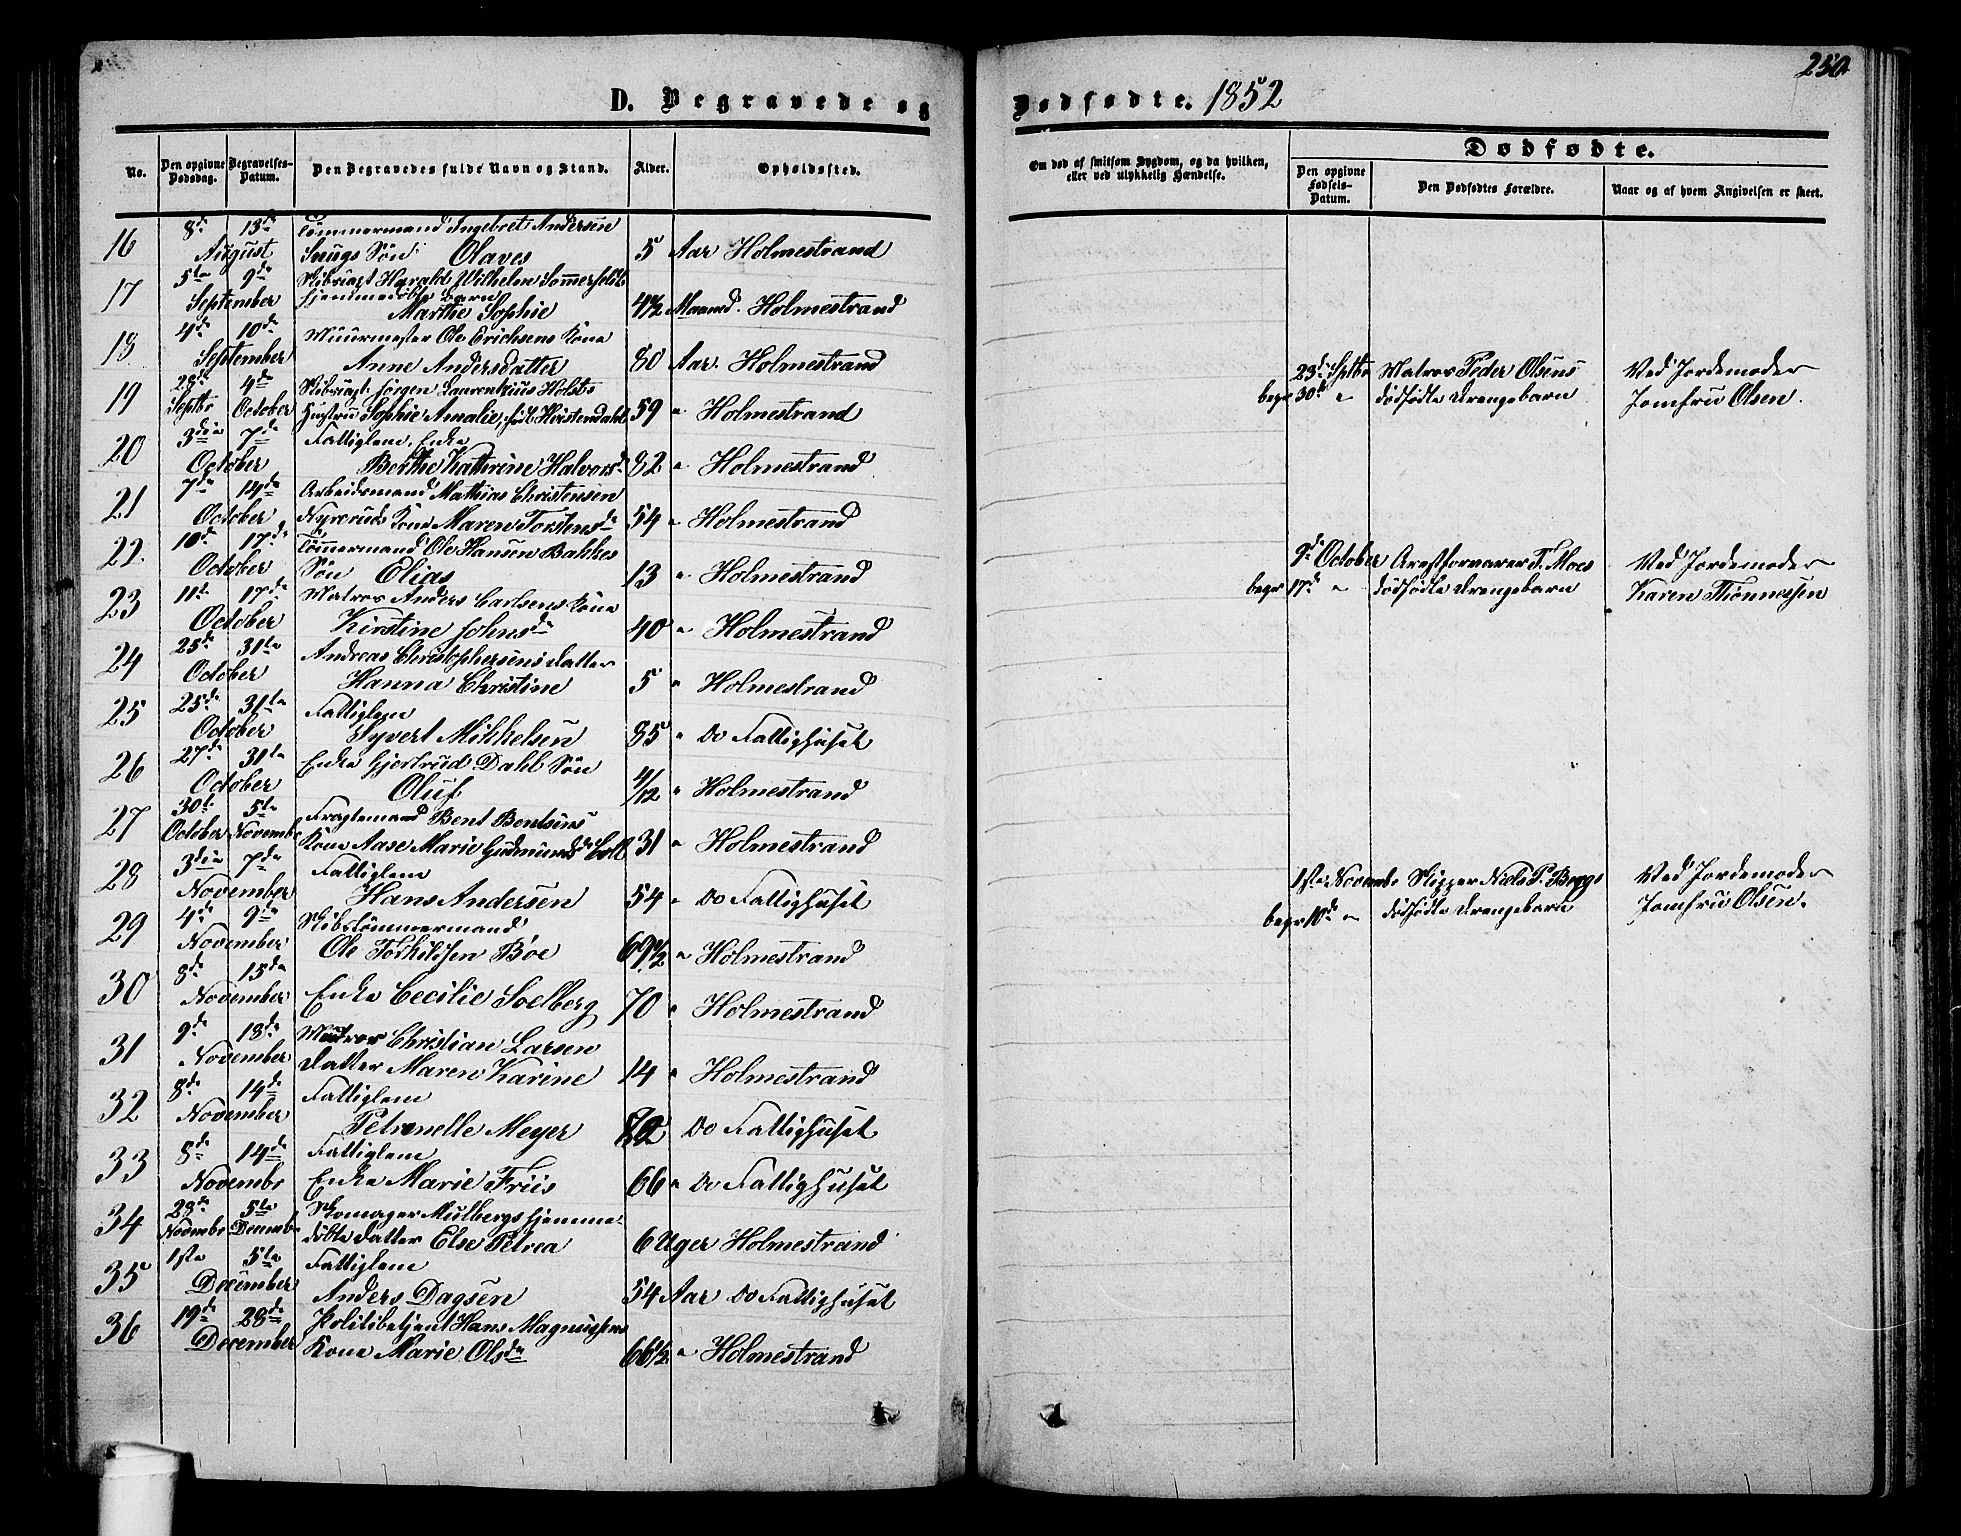 250
D. Begravede og Dødfødte. 1852
No. Den opgivne Dødsdag. Begravelses-Datum. Den Begravedes fulde Navn og Stand. Alder. Opholdssted. Om død af smitsom Sygdom, og da hvilken, eller ved ulykkelig Hændelse. Dødfødte. Den opgivne Fødsels-Datum. Den Dødfødtes Forældre. Naar og af hvem Angivelsen er skeet.
8de 13de Tömmermand Ingebret Andersen
16 August Søn Olaves 5 Aar Holmestrand
5te 9de Skibsrigt Harald Wilhelm Sommerfeldts
17 September hjemmedøbte Barn Marthe Sophie 4 1/2 Maaned. Holmestrand
4de 10de Muurmester Ole Erichsens Kone
18 September Anne Andersdatter 80 Aar. Holmestrand
28de 4de Jørgen Laurentzius Holsts
19 Septbr October Hustru Sophie Amalie, 59 " Holmestrand
3die 7de Fattiglem, Enke
20 October Berthe Kathrine Halvorsd. 82 " Holmestrand
7de 14de Arbeidsmand Mathias Christensen
21 October Kone Maren Torstensd. 54 " Holmestrand
10de 17de Tömmermand Ole Hansen Bakkes
22. October Søn Elias 13 " Holmestrand
11te 17de Matros Anders Carlsens Kone
23 October Kirstine Johnsd. 40 " Holmestrand
25de 31te Andreas Christophersens Datter
24 October Hanna Christine 5 " Holmestrand
25de 31te Fattiglem
25 October Syvert Mikkelsen 85 " Do Fattighuset
27de 31te Enke Gjertrud Dahl Søn
26 October Oluf 4/12 " Holmestrand
30te 5te Bent Bentsens
27 October Novembr Kone Aase Marie Gudmundsd. 31 " Holmestrand
3die 7de Fattiglem
28 November Hans Andersen 54 " Do Fattighuset
4de 9de Skibstömmermand
29 November Ole Torkildsen Bøe 69 1/2 " Holmestrand
8de 15de
30 November Enke Cecilie Soelberg 70 " Holmestrand
9de 18de Matros Christian Larsen
31 November Datter Maren Karine 14 " Holmestrand
8de 14de Fattiglem
32 November Petronelle Meyer Do Fattighuset
8de 14de Fattiglem
33 Novembr Enke Marie Friis 66 " Do Fattighuset
28de 5te Skomager Mulbergs hjemme-
34 Novembr Decembr døbte Datter Else Petrea 6 Uger Holmestrand
1ste 5te Fattiglem
35 December Anders Dagsen 54 Aar Do Fattighuset
19de 28de Politibetjent Hans Magnussens
36 December Kone Marie Olsd. 66 1/2 " Holmestrand
23de Septbr Matros Peder Olsens Ved Jordemoder
begr 30te " dødfødte Drengebarn Jomfru Olsen.
9de October Arestforvarer T. Moes Ved Jordemoder
begr 17de " dødfødte Drengebarn Karen Thønnessen
1ste Novembr Skipper Niels P. Bergs Ved Jordemoder
begr 10de " dødfødte Drengebarn Jomfru Olsen.